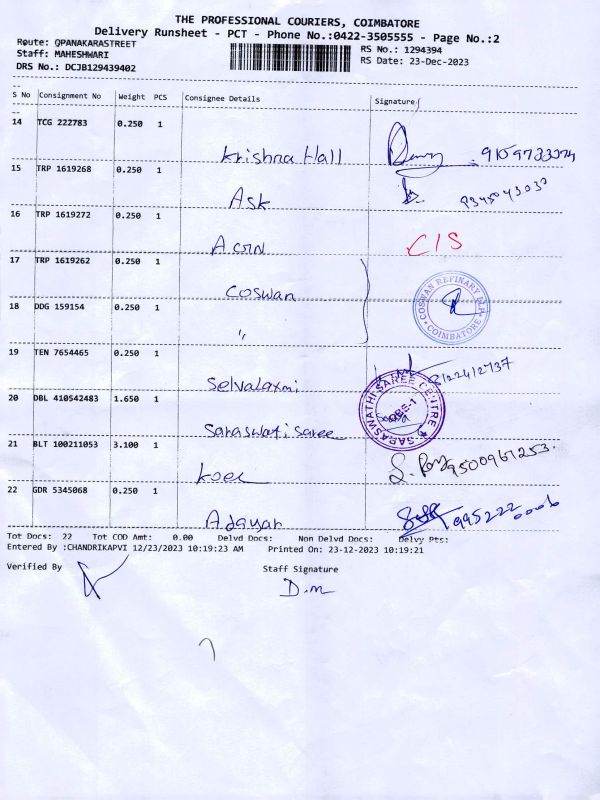 THE PROFESSIONAL COURIERS, COIMBATORE
Delivery Runsheet - PCT - Phone No.:0422-3505555 - Page No.:2
Route: @PANAKARASTREET
Staff: MAHESHWARI
DRS No.: DCJB129439402
RS No.: 1294394
RS Date: 23-Dec-2023
S No Consignment No Weight PCS Consignee Details Signature
14 TCG 222783 0.250 1
Krishna Hall
15 TRP 1619268 0.250 1
Ask
16 TRP 1619272 0.250 1
Acorn CIS
17 TRP 1619262 0.250 1
Coswan COSWAN REFINARY COIMBATORE
18 DDG 159154 0.250 1
"
19 TEN 7654465 0.250 1
Selvalaxmi 8122412737
20 DBL 410542483 1.650 1
Saraswati saree SARASWATHI SAREE CENTRE CBE-1
21 BLT 100211053 3.100 1
9500961253.
22 GDR 5345068 0.250 1
Adayar
Tot Docs: 22 Tot COD Amt: 0.00 Delvd Docs: Non Delvd Docs: Delvy Pts:
Entered By :CHANDRIKAPVI 12/23/2023 10:19:23 AM Printed On: 23-12-2023 10:19:21
Verified By Staff Signature
D.m